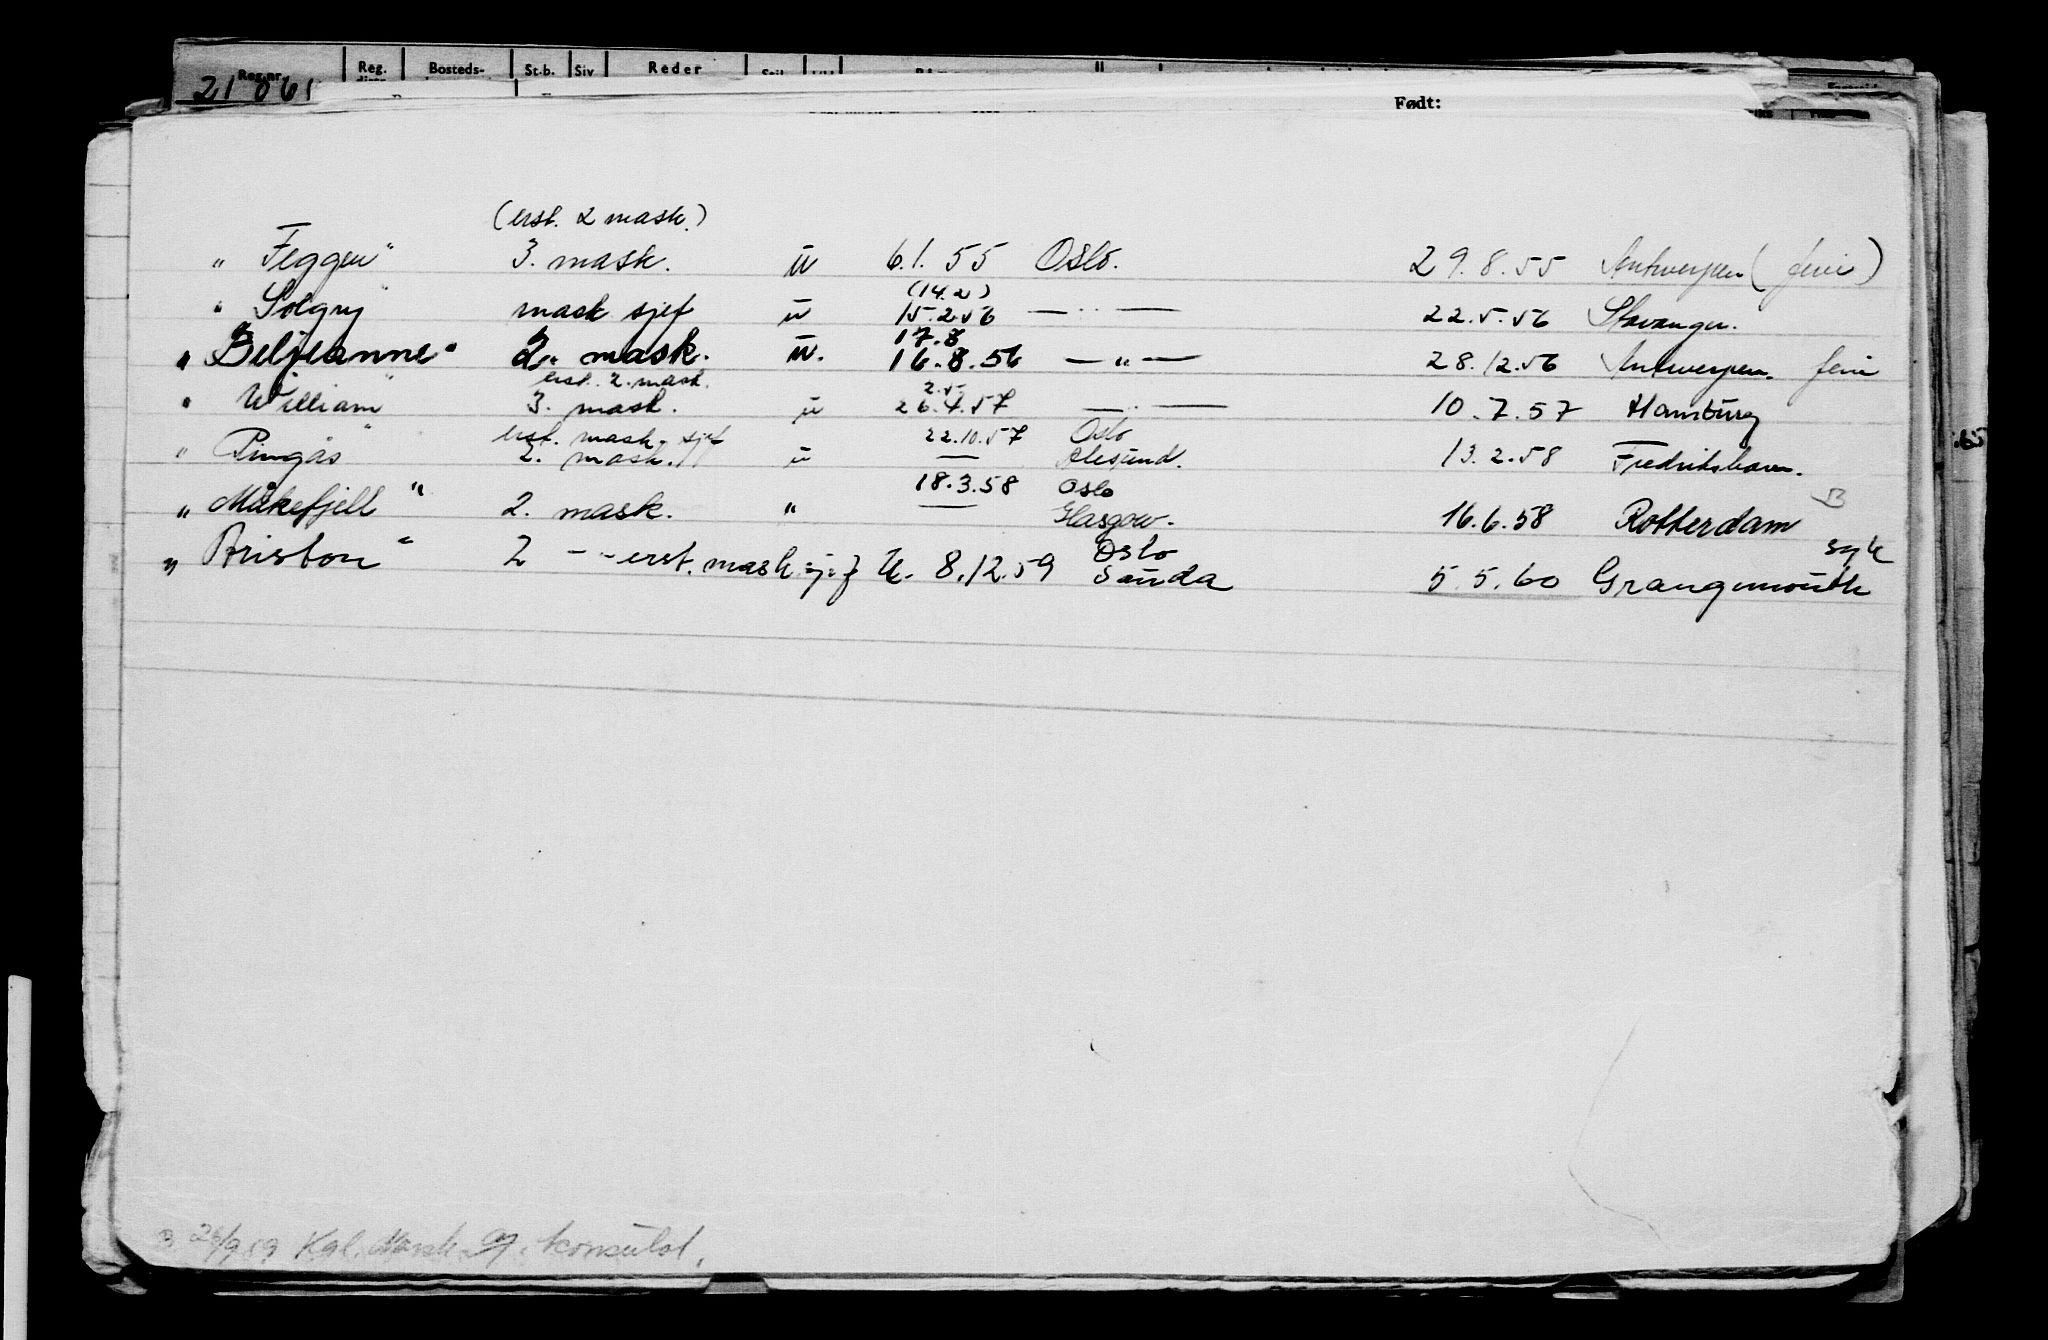 Reg.nr. Reg. Bosteds- St.b. Siv Reder
21061
Født:
(erst. 2 mask.)
" Feggen" 3. mask. u 6.1.55 Oslo. 29.8.55 Antwerpen (ferie)
(14.2)
" Solgry" mask sjef u 15.2.56 — " — 22.5.56 Stavanger.
17.8
" Beljeanne" 2. mask. u. 16.8.56 — " — 28.12.56 Antwerpen. ferie
erst. 2. mask. 2.5
" William" 3. mask. u 26.4.57 — " — 10.7.57 Hamburg
erst. mask. sjef 22.10.57 Oslo
" Ringås" 2. mask. u — Ålesund. 13.2.58 Fredrikshavn.
18.3.58 Oslo
" Måkefjell" 2. mask. " — Glasgow. 16.6.58 Rotterdam
Oslo syk
" Ariston" 2 - - erst. mask sjef U. 8.12.59 Sauda 5.5.60 Grangemouth
Kgl. Norsk konsulat.